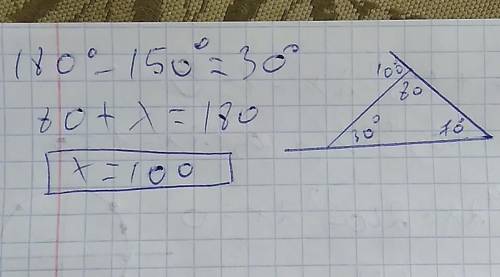 180° - 150° = 30°
80 + x = 180
x = 100
100
80
30°
70°